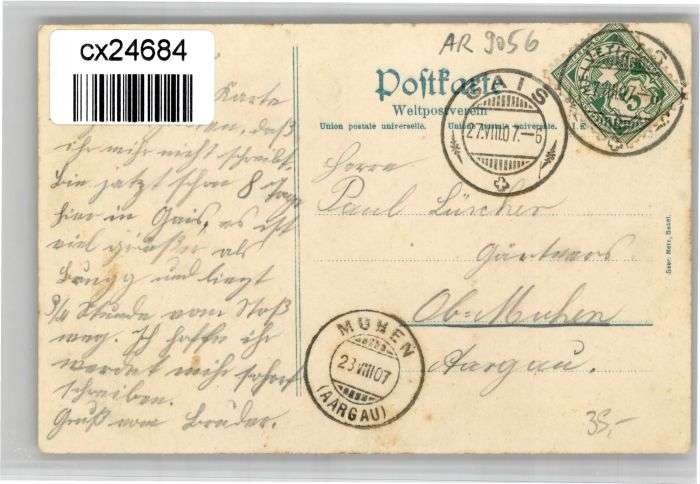 cx24684
AR 9056
Postkarte
Weltpostverein
Union postale universelle. Union postale universale.
GAIS
27.VIII.07.-6
HELVETIA
5
Herrn
Paul Lüscher
Gärtners
Ob-Muhen
Aargau.
Karte
daß
ihr mir nicht schreibt.
Bin jetzt schon 8 Tage
hier in Gais, es ist
viel größer als
Brugg und liegt
3/4 Stunde vom Stoß
weg. Ich hoffe ihr
werdet mir sofort
schreiben.
Gruß vom Bruder.
MUHEN
23 VIII 07
(AARGAU)
35,-